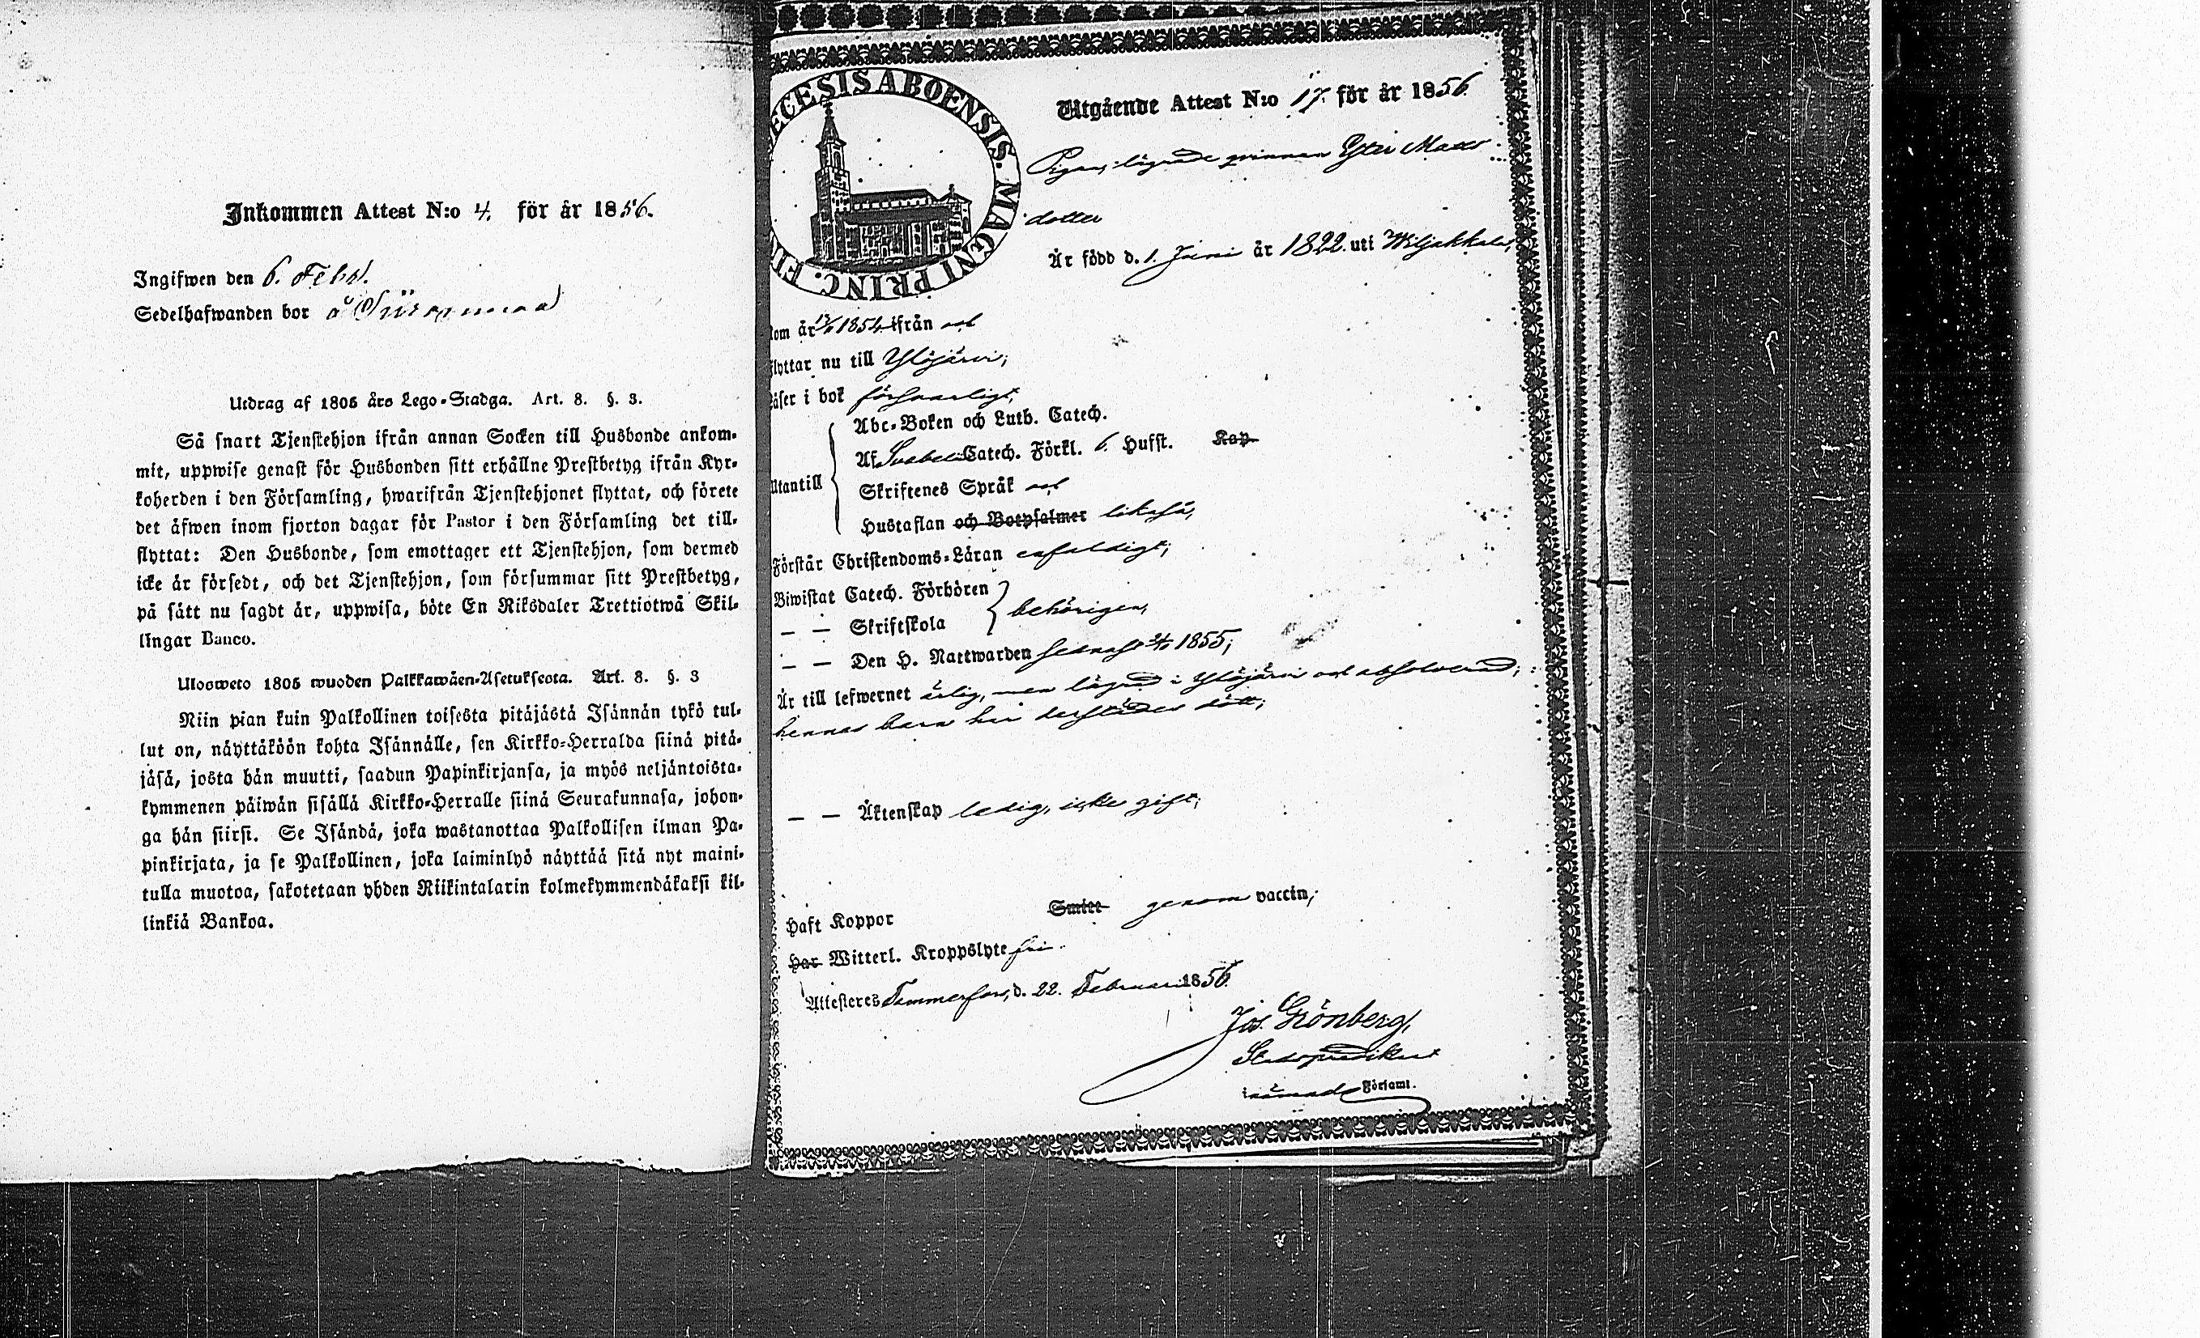 Inkommen Attest N:o 4. för år 1856.
Ingifwen den 6. Febr.
Sedelhafwanden bor å
Utdrag af 1805 års Lego-Stadga. Art. 8. §. 3.
Så snart Tjenstehjon ifrån annan Socken till Husbonde ankom-
mit, uppwise genast för Husbonden sitt erhållne Prestbetyg ifrån Kyr-
koherden i den Församling, hwarifrån Tjenstehjonet flyttat, och förete
det äfwen inom fjorton dagar för Pastor i den Församling det till-
flyttat: Den Husbonde, som emottager ett Tjenstehjon, som dermed
icke är försedt, och det Tjenstehjon, som försummar sitt Prestbetyg,
på sätt nu sagdt är, uppwisa, böte En Riksdaler Trettiotwå Skil-
lingar Banco.
Ulosweto 1805 wuoden Palkkawäen-Asetuksesta. Art. 8. §. 3
Niin pian kuin Palkollinen toisesta pitäjästä Isännän tykö tul-
lut on, näyttäköön kohta Isännälle, sen Kirkko-Herralda siinä pitä-
jäsä, josta hän muutti, saadun Papinkirjansa, ja myös neljäntoista-
kymmenen päiwän sisällä Kirkko-Herralle siinä Seurakunnasa, johon-
ga hän siirsi. Se Isändä, joka wastanottaa Palkollisen ilman Pa-
pinkirjata, ja se Palkollinen, joka laiminlyö näyttää sitä nyt maini-
tulla muotoa, sakotetaan yhden Riikintalarin kolmekymmendäkaksi kil-
linkiä Bankoa.
ECESIS ABOENSIS. MAGNI PRINC. FI
Utgående Attest N:o 17. för år 1856
Pigan, lägrade qvinnan Mats
dotter
Är född d. 1. Juni år 1822. uti Wiljakkala,
kom år 1854 ifrån
flyttar nu till Ylöjärvi;
läser i bok försvarligt;
Abc-Boken och Luth. Catech.
Af Svebelii Catech. Förkl. 6. Hufst. Kap.
Utantill
Skriftenes Språk
Hustaflan och Botpsalmer likaså,
Förstår Christendoms-Läran enfaldigt;
Biwistat Catech. Förhören
behörigen,
— — Skriftskola
— — Den H. Nattwarden sednast 1855;
Är till lefwernet ärlig, men lägrad i Ylöjärvi och absolverad;
hennes barn här derstädes dött;
— — Äktenskap ledig, icke gift;
Haft Koppor Smitt genom vaccin;
Har Witterl. Kroppslyte fri.
Attesteres Tammerfors, d. 22. Februari 1856.
Jos. Grönberg,
Stadspredikant
Församl.